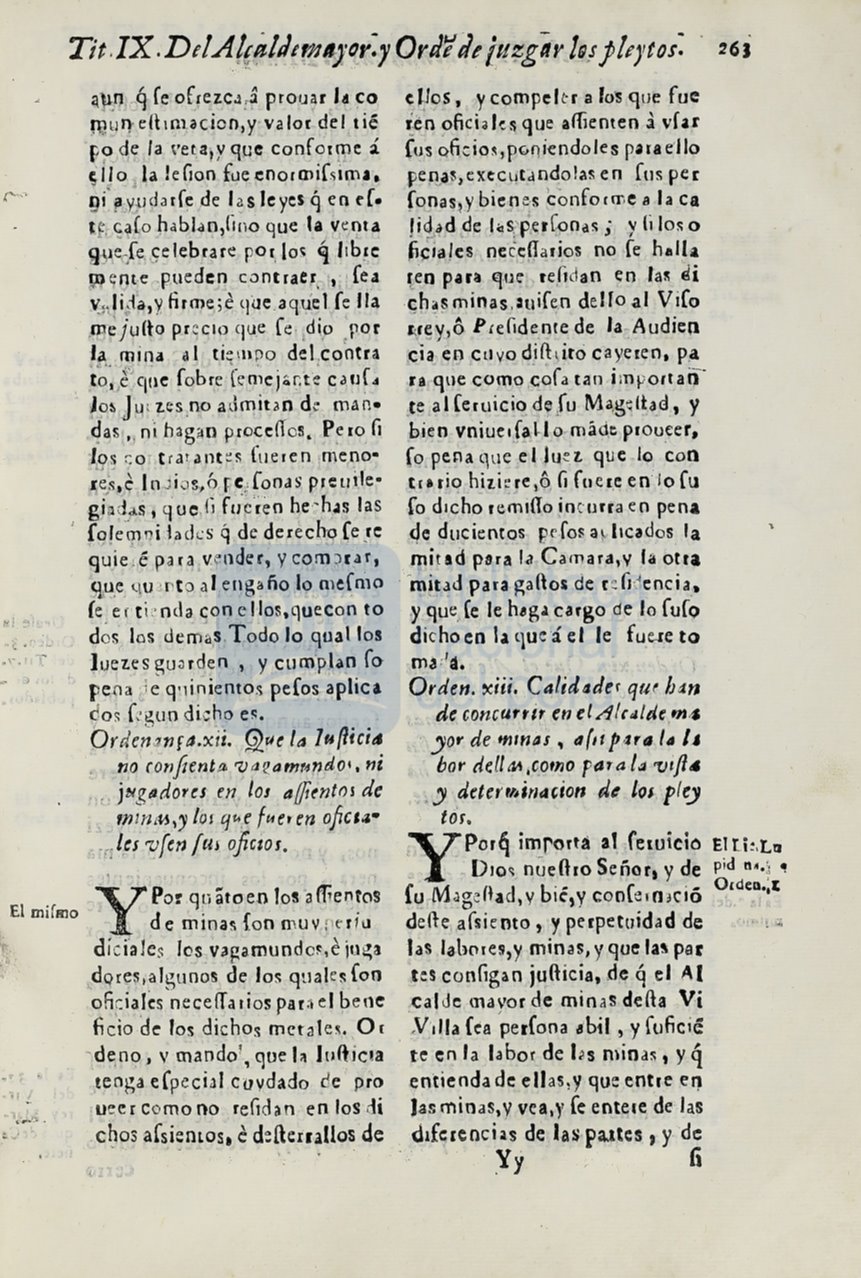 Tit.IX.Del Alcalde mayor.y Ordẽ de juzgar los pleytos. 263
aun q̃ ſe ofrezca, á prouar la co
mun eſtimacion, y valor del tiẽ
po de la veta, y que conforme á
ello la leſion fue enormiſsima,
ni ayudarſe de las leyes q̃ en eſ-
te caſo hablan, ſino que la venta
que ſe celebrare por los q̃ libre
mente pueden contraer, ſea
valida, y firme; è que aquel ſe lla
me juſto precio que ſe dio por
la mina al tiempo del contra
to, è que ſobre ſemejante cauſa
los Juezes no admitan de man-
das, ni hagan proceſſos. Pero ſi
los contratantes fueren meno-
res, è Indios, ó perſonas preuile-
giadas, que ſi fueren hechas las
ſolemnidades q̃ de derecho ſe re
quieré para vender, y comprar,
que quanto al engaño lo meſmo
ſe entienda con ellos, que con to
dos los demas. Todo lo qual los
Iuezes guarden, y cumplan ſo
pena de quinientos peſos aplica
dos ſegun dicho es.
Ordenança.xii. Que la Iuſticia
no conſienta vagamundos, ni
jugadores en los aſſientos de
minas, y los que fueren oficia-
les vſen ſus oficios.
El miſmo
Y Por quãto en los aſſientos
de minas ſon muy perju
diciales los vagamundos, è juga
dores, algunos de los quales ſon
oficiales neceſſarios para el bene
ficio de los dichos metales. Or
deno, y mando, que la Iuſticia
tenga eſpecial cuydado de pro
ueer como no reſidan en los di
chos aſsientos, è deſterrallos de
ellos, y compeler a los que fue
ren oficiales que aſſienten à vſar
ſus oficios, poniendoles para ello
penas, executandolas en ſus per
ſonas, y bienes conforme a la ca
lidad de las perſonas; y ſi los o
ficiales neceſſarios no ſe halla
ren para que reſidan en las di
chas minas, auiſen dello al Viſo
rrey, ô Preſidente de la Audien
cia en cuyo diſtrito cayeren, pa
ra que como coſa tan importan
te al ſeruicio de ſu Mageſtad, y
bien vniuerſal lo mãde proueer,
ſo pena que el Iuez que lo con
trario hiziere, ô ſi fuere en lo ſu
ſo dicho remiſſo incurra en pena
de ducientos peſos aplicados la
mitad para la Camara, y la otra
mitad para gaſtos de reſidencia,
y que ſe le haga cargo de lo ſuſo
dicho en la que á el le fuere to
mada.
Orden. xiii. Calidades que han
de concurrir en el Alcalde ma
yor de minas, aſsi para la la
bor dellas, como para la viſta
y determinacion de los pley
tos.
El Li:. Lo
Orden.
Y Porq̃ importa al ſeruicio
Dios nueſtro Señor, y de
ſu Mageſtad, y bié, y conſeruació
deſte aſsiento, y perpetuidad de
las labores, y minas, y que las par
tes conſigan juſticia, de q̃ el Al
calde mayor de minas deſta Vi
Villa ſea perſona abil, y ſuficiẽ
te en la labor de las minas, y q̃
entienda de ellas, y que entre en
las minas, y vea, y ſe entere de las
diferencias de las partes, y de
Yy ſi